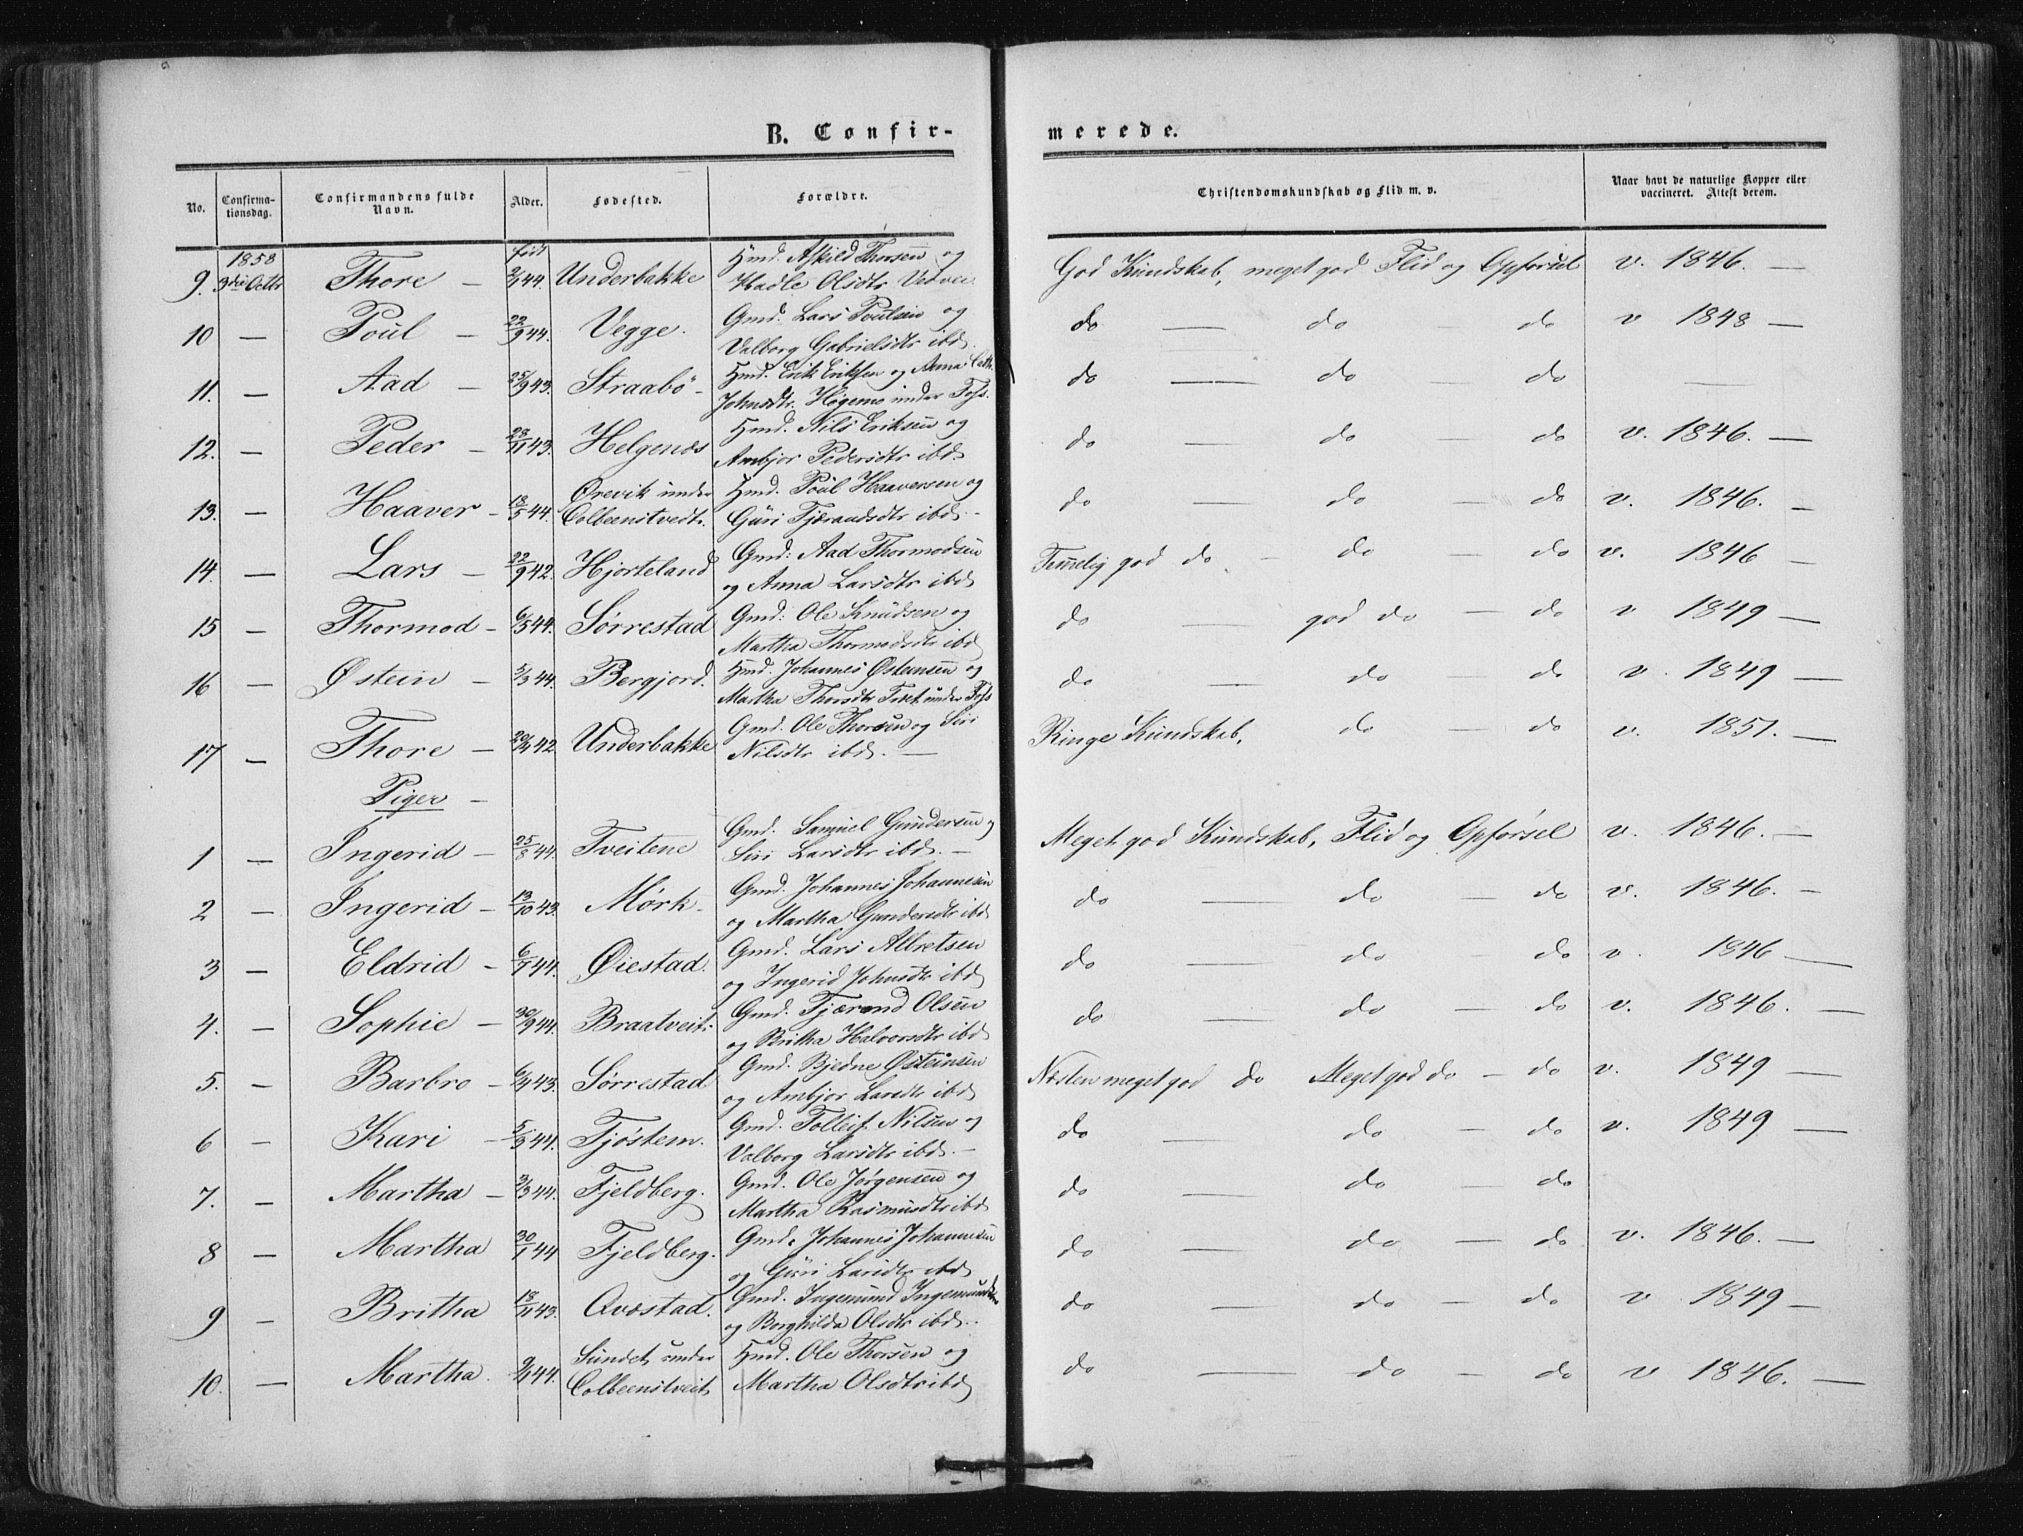 B. Confir-
merede.
No.
Confirma-
tionsdag.
Confirmandens fulde
Navn.
Alder.
Fødested.
Forældre.
Christendomskundskab og Flid m. v.
Naar havt de naturlige Kopper eller
vaccineret. Attest derom.
1858 født Hmd. Askild Thorsen og
9. 9de Octbr Thore – 44. Underbakke Hadle Olsdtr God Kundskab, meget god Flid og Opførsel v. 1846. –
10 – Poul – 22/9 44. Vegge. Gmd. Lars Poulsen og
Valborg Gabrielsdtr ibd. do — do – do v 1848 –
11. – Aad – 25/9 43. Straabö – Hmd. Erik Eriksen og Anna Cath.
Johnsdtr. Høgemo under Foss. do — do – do —
12. – Peder – 23/11 43. Helgenæs Hmd. Nils Eriksen og
Ambjor Pedersdtr ibd. do — do – do v. 1846. –
13. – Haaver – 18/5 44. Ørevik under
Colbeenstvedt. Hmd. Poul Haaversen og
Guri Tjærandsdtr ibd. – do — do – do v. 1846. –
14. – Lars – 22/9 42. Hjorteland Gmd: Aad Thormodsen
og Anna Larsdtr ibd Temmelig god do – do – do v. 1846 –
15 – Thormod – 6/5 44. Sørrestad Gmd: Ole Knudsen og
Martha Thormodsdtr ibd do — god do – do v 1849 –
16 – Østein – 5/3 44. Bergjord. Hmd. Johannes Østensen og
Martha Thorsdtr under Foss do — do – do v. 1849 –
17 – Thore – 42. Underbakke Gmd. Ole Thorsen og Siri
Nilsdtr ibd. – Ringe Kundskab, do – do v. 1851. –
Piger –
1 – Ingerid – 25/8 44. Tveitene Gmd. Samuel Gundersen og
Siri Larsdtr ibd. – Meget god Kundskab, Flid og Opførsel v. 1846. –
2 – Ingerid – 13/10 43. Mørk – Gmd. Johannes Johannesen
og Martha Gundersdtr ibd do — do – do v. 1846. –
3 – Eldrid – 44. Øiestad. Gmd. Lars Albretsen
og Ingerid Johnsdtr ibd do — do – do v. 1846 –
4. – Sophie – 30/9 44. Braatveit. Gmd. Tjærand Olsen
og Britha Halvorsdtr ibd do — do – do v. 1846. –
5. – Barbro – 43. Sørrestad Gmd. Bjedne Østeinsen
og Ambjor Larsdtr ibd Næsten meget god do Meget god do – do v. 1849 –
6 – Kari – 5/3 44. Tjøstem. Gmd. Tolleif Nilsen og
Valborg Larsdtr ibd. – do — do – do v. 1849 –
7. – Martha – 3/3 44. Fjeldberg. Gmd. Ole Jørgensen og
Martha Rasmusdtr ibd do — do – do
8 – Martha 30/1 44 Fjeldberg. Gmd. Johannes Johannesen
og Guri Larsdtr ibd do — do – do v. 1846. –
9 – Britha 18/11 43. Avestad. Gmd. Ingemund Ingemundsen
og Borghilda Olsdtr ibd. do — do – do v 1849 –
10. – Martha. 44. Sundet under
Colbeenstveit Hmd. Ole Thorsen og
Martha Olsdtr ibd do — do – do v 1846. –